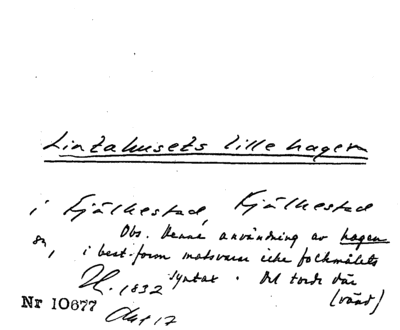 Lintahusets lille hagen
i Fjälkestad, Fjälkestad
sn, Obs. Denna användning av hagen
i best. form motsvarar icke folkmålets
syntax. Det torde
(värd)
H. 1832
Nr 10677
Akt 17